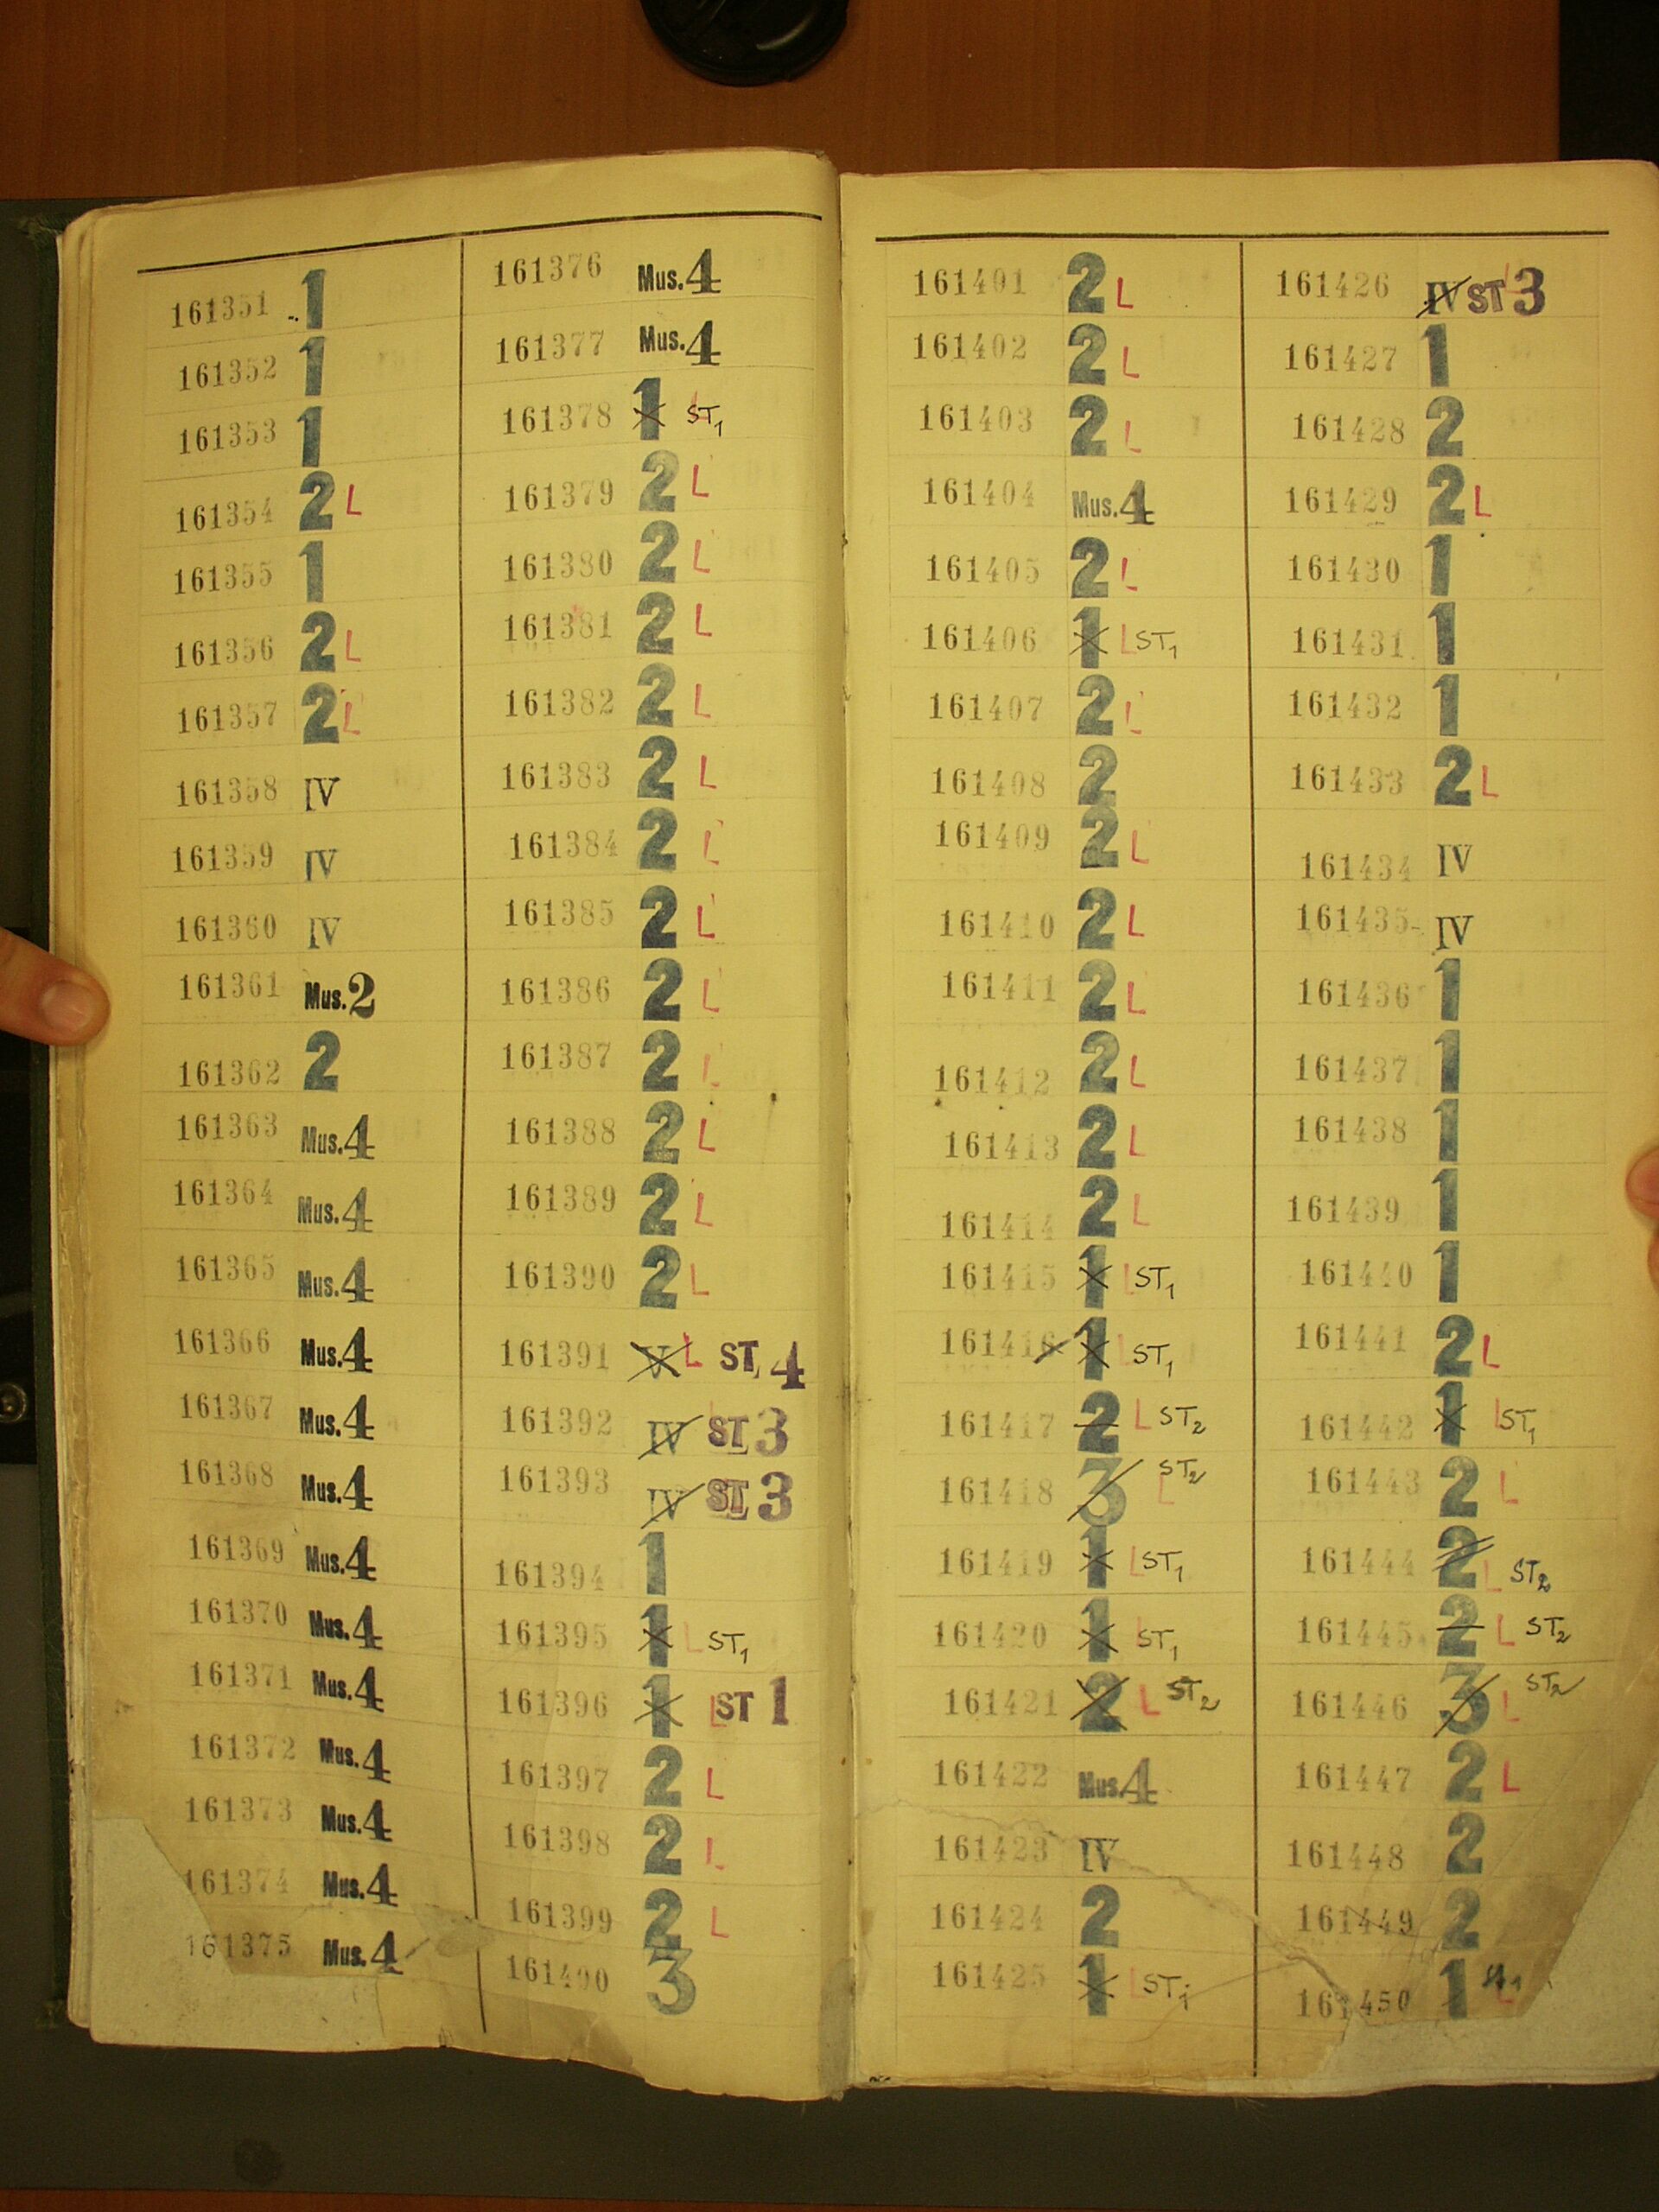 161351 1
161352 1
161353 1
161354 2 L
161355 1
161356 2 L
161357 2 L
161358 IV
161359 IV
161360 IV
161361 Mus.2
161362 2
161363 Mus.4
161364 Mus.4
161365 Mus.4
161366 Mus.4
161367 Mus.4
161368 Mus.4
161369 Mus.4
161370 Mus.4
161371 Mus.4
161372 Mus.4
161373 Mus.4
161374 Mus.4
161375 Mus.4
161376 Mus.4
161377 Mus.4
161378 1 L ST1
161379 2 L
161380 2 L
161381 2 L
161382 2 L
161383 2 L
161384 2 L
161385 2 L
161386 2 L
161387 2 L
161388 2 L
161389 2 L
161390 2 L
161391 V L ST 4
161392 IV ST 3
161393 IV ST 3
161394 1
161395 1 L ST1
161396 1 L ST 1
161397 2 L
161398 2 L
161399 2 L
161400 3
161401 2 L
161402 2 L
161403 2 L
161404 Mus.4
161405 2 L
161406 1 L ST1
161407 2 L
161408 2
161409 2 L
161410 2 L
161411 2 L
161412 2 L
161413 2 L
161414 2 L
161415 1 L ST1
161416 1 L ST1
161417 2 L ST2
161418 3 L ST2
161419 1 L ST1
161420 1 L ST1
161421 2 L ST2
161422 Mus.4
161423 IV
161424 2
161425 1 L ST1
161426 IV ST 3
161427 1
161428 2
161429 2 L
161430 1
161431 1
161432 1
161433 2 L
161434 IV
161435 IV
161436 1
161437 1
161438 1
161439 1
161440 1
161441 2 L
161442 1 L ST1
161443 2 L
161444 2 L ST2
161445 2 L ST2
161446 3 L ST2
161447 2 L
161448 2
161449 2
161450 1 L